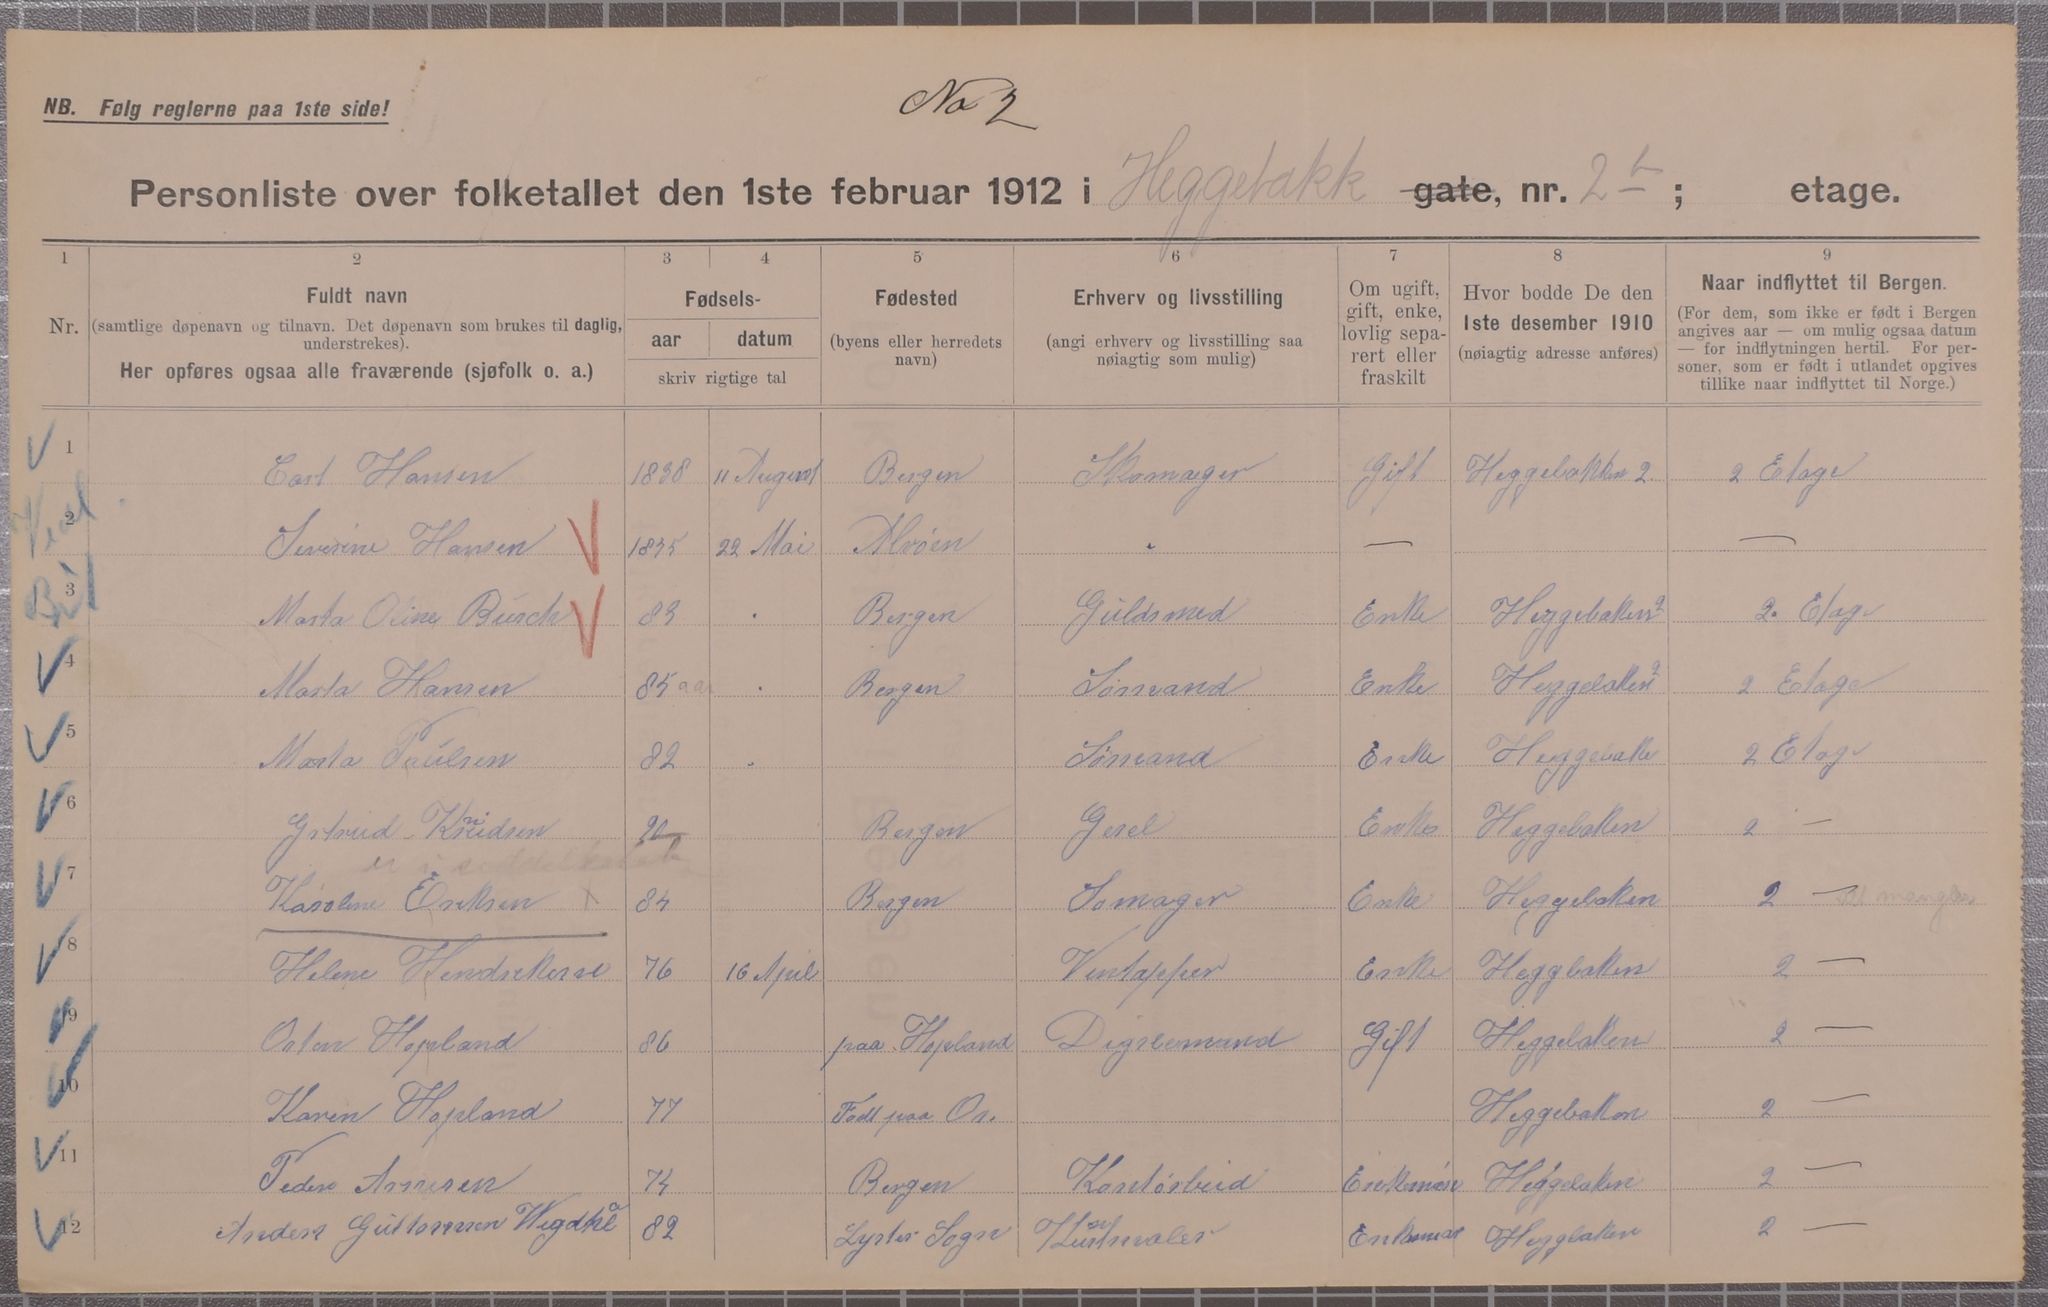 NB. Følg reglerne paa 1ste side!
No 2
Personliste over folketallet den 1ste februar 1912 i Heggebakk gate, nr. 2 b ; etage.
1 2 3 4 5 6 7 8 9
Nr.
Fuldt navn
(samtlige døpenavn og tilnavn. Det døpenavn som brukes til daglig,
understrekes).
Her opføres ogsaa alle fraværende (sjøfolk o. a.)
Fødsels-
aar datum
skriv rigtige tal
Fødested
(byens eller herredets
navn)
Erhverv og livsstilling
(angi erhverv og livsstilling saa
nøiagtig som mulig)
Om ugift,
gift, enke,
lovlig sepa-
rert eller
fraskilt
Hvor bodde De den
1ste desember 1910
(nøiagtig adresse anføres)
Naar indflyttet til Bergen.
(For dem, som ikke er født i Bergen
angives aar — om mulig ogsaa datum
— for indflytningen hertil. For per-
soner, som er født i utlandet opgives
tillike naar indflyttet til Norge.)
1 Carl Hansen 1838 11 August Bergen Skomager Gift Heggebakken 2 2 Etage
2 Severine Hansen 1835 22 Mai Alvöen " — —
3 Marta Oline Busch 83 Bergen Guldsmed Enke Heggebaken 2 2. Etage
4 Marta Hansen 85 aar Bergen Sömand Enke Heggebaken 2 2 Etage
5 Marta Paulsen 82 Sömand Enke Heggebake 2 Etage
6 Knudsen Bergen Gesel Enke Heggebaken 2 —
er i
7 Karoline Eriksen 84 Bergen Somager Enke Heggebaken 2 —
8 Helene 76 16 April Vintapper Enke Heggbaken 2 —
9 Hopland 86 paa Hopland Gift Heggebaken 2 —
10 Karen Hopland 77 Födt paa Os. Heggebaken 2 —
11 Peder 74 Bergen Enkeman Heggebaken 2 —
12 Anders Guttormsen 82 Lyster Sogn Enkeman Heggbaken 2 —